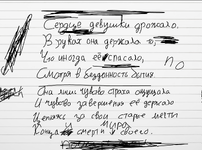 Сердце девушки дрожало.
В руках она держала то,
Что иногда её спасало,
Смотря в бездонность бытия.
Она лишь чувство страха ощущала
И чувство завершения её держало
Цепляясь за свои старые мечты
Конца и смерти своего.